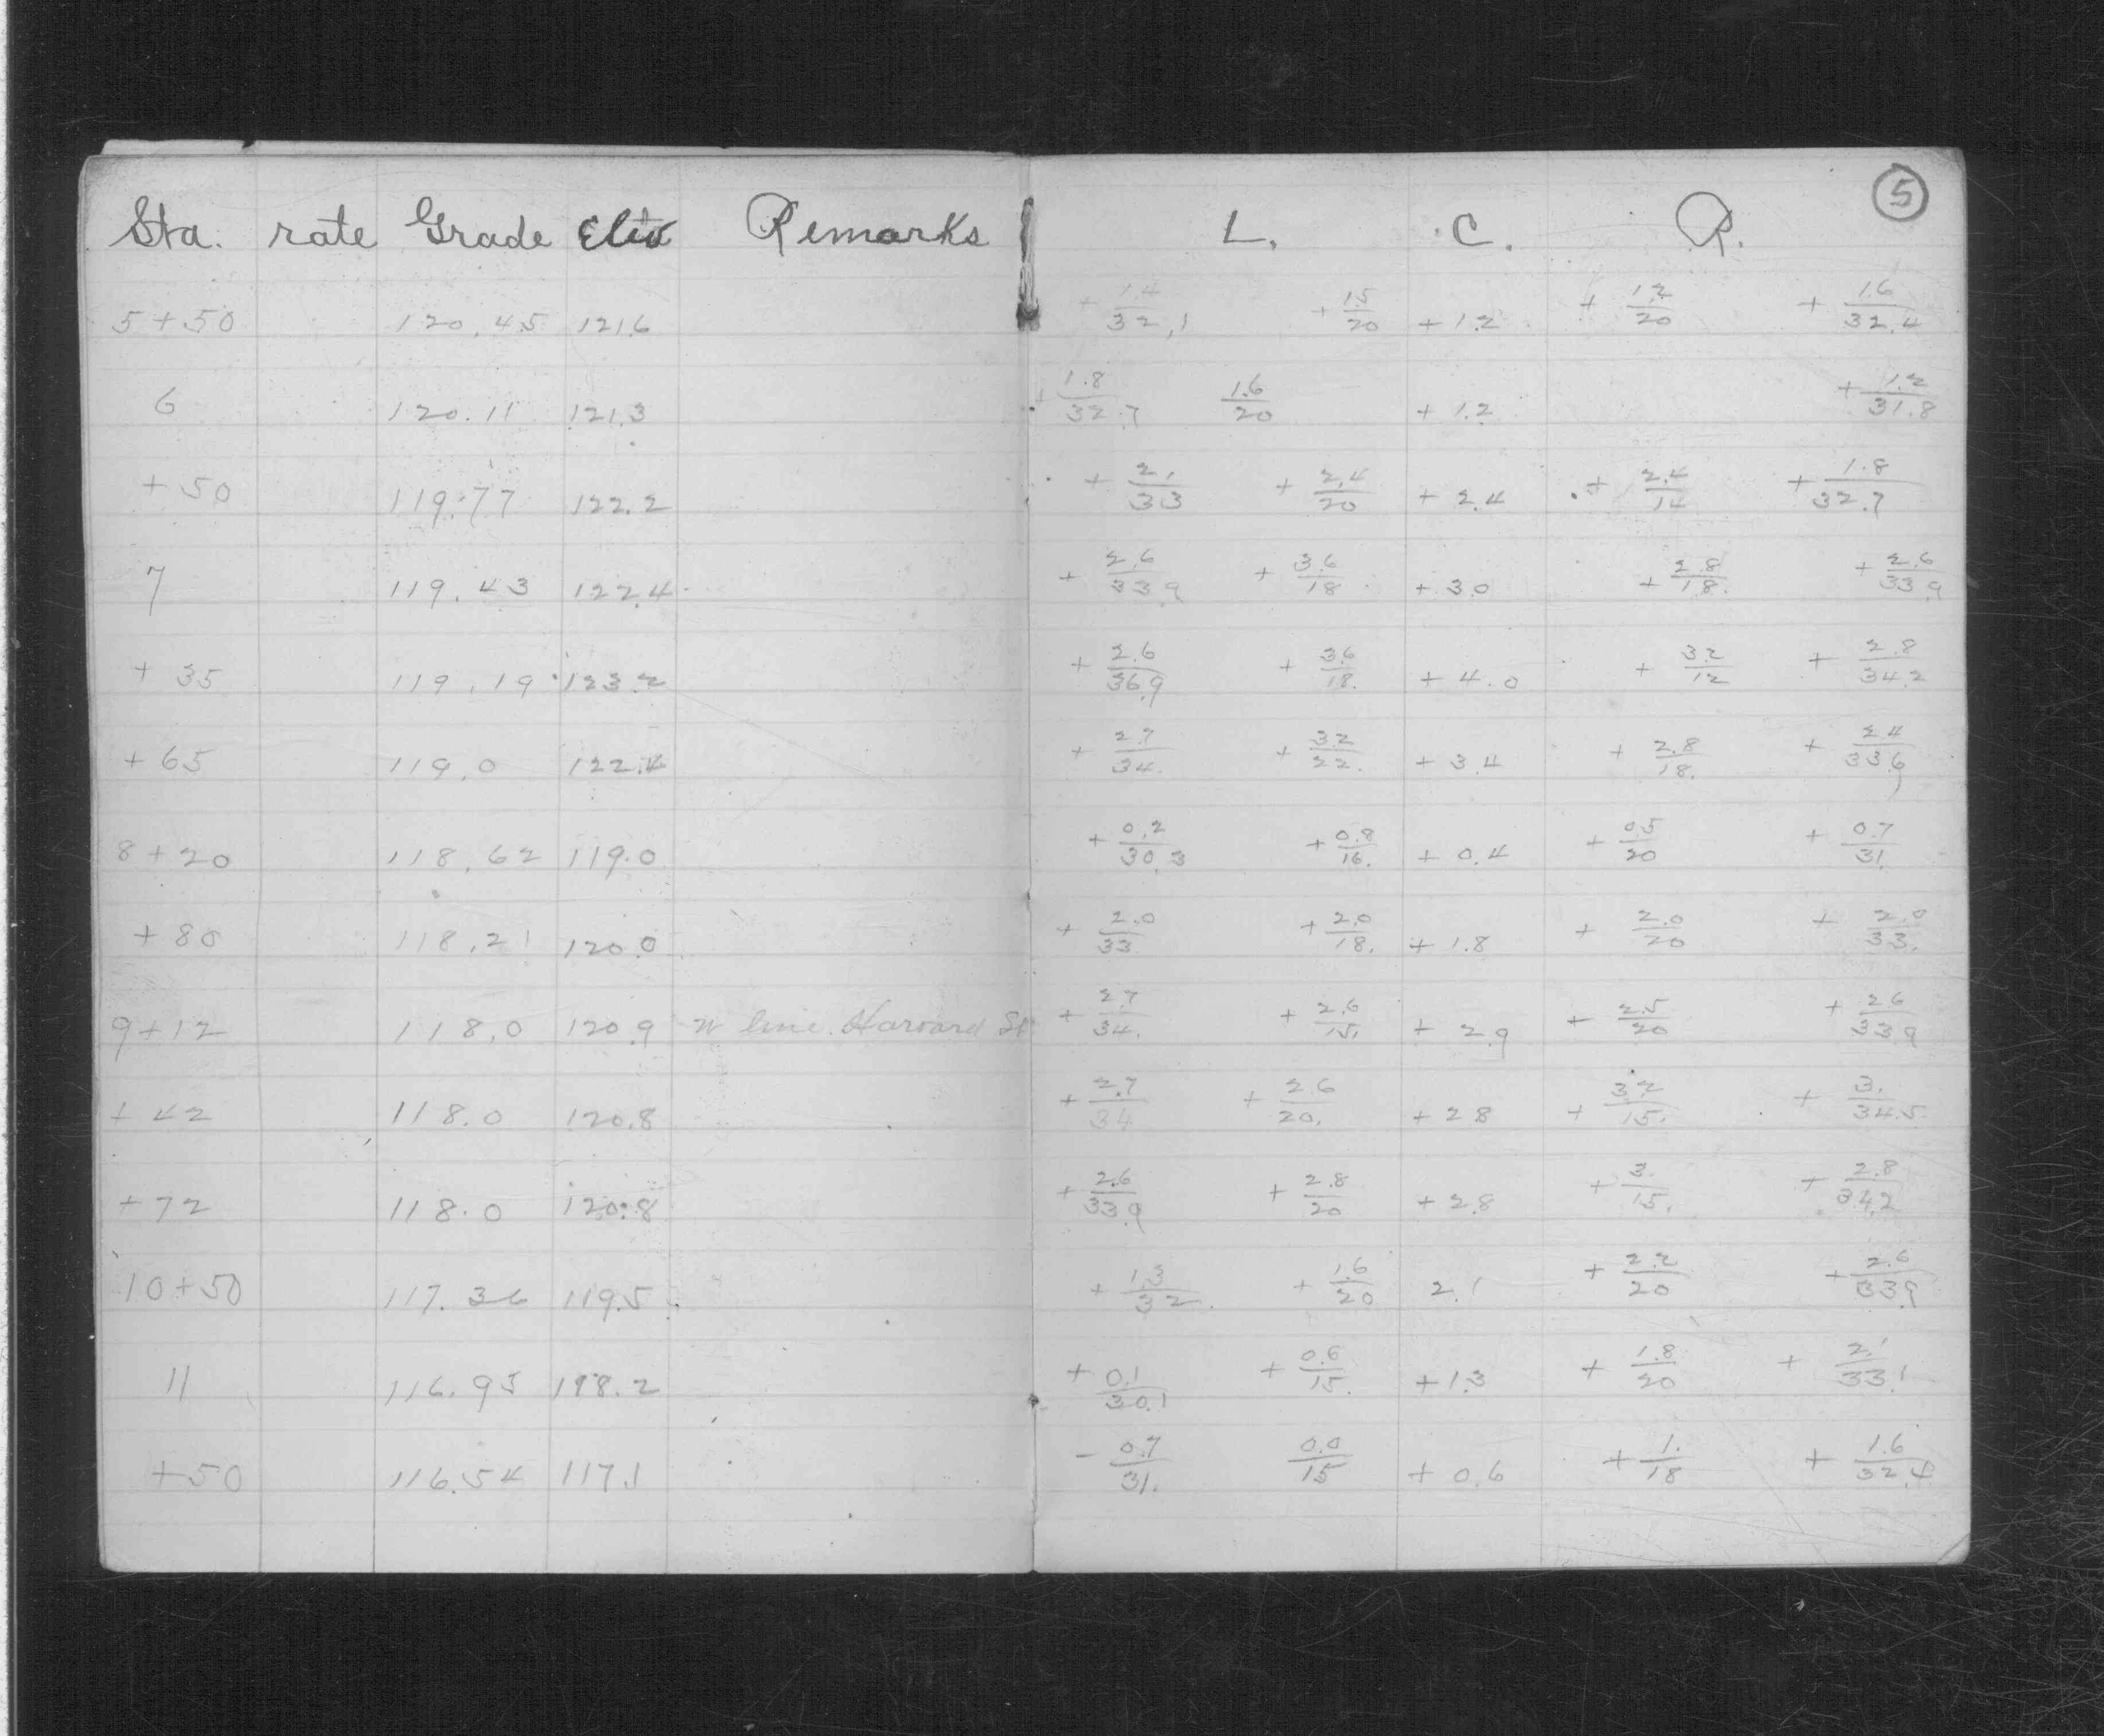 5
Sta. rate Grade Elev Remarks L. C. R.
5+50 120.45 121.6 + 1.4/32.1 + 1.5/20 + 1.2 + 1.2/20 + 1.6/32.4
6 120.11 121.3 + 1.8/32.7 1.6/20 + 1.2 + 1.2/31.8
+ 50 119.77 122.2 + 2.1/33 + 2.4/20 + 2.4 + 2.4/14 + 1.8/32.7
7 119.43 122.4 + 2.6/33.9 + 3.6/18 + 3.0 + 2.8/18. + 2.6/33.9
+ 35 119.19 123.2 + 2.6/36.9 + 3.6/18. + 4.0 + 3.2/12 + 2.8/34.2
+ 65 119.0 122.4 + 2.7/34. + 3.2/22. + 3.4 + 2.8/18. + 2.4/33.6
8+20 118.62 119.0 + 0.2/30.3 + 0.8/16. + 0.4 + 0.5/20 + 0.7/31.
+ 80 118.21 120.0 + 2.0/33 + 2.0/18. + 1.8 + 2.0/20 + 2.0/33.
9+12 118.0 120.9 W line Harvard St + 2.7/34. + 2.6/15. + 2.9 + 2.5/20 + 2.6/33.9
+ 42 118.0 120.8 + 2.7/34 + 2.6/20. + 2.8 + 3.2/15. + 3./34.5
+ 72 118.0 120.8 + 2.6/33.9 + 2.8/20 + 2.8 + 3./15. + 2.8/34.2
10+50 117.36 119.5 + 1.3/32. + 1.6/20 2.1 + 2.2/20 + 2.6/33.9
11 116.95 118.2 + 0.1/30.1 + 0.6/15. + 1.3 + 1.8/20 + 2.1/33.1
+50 116.54 117.1 - 0.7/31. 0.0/15 + 0.6 + 1./18 + 1.6/32.4